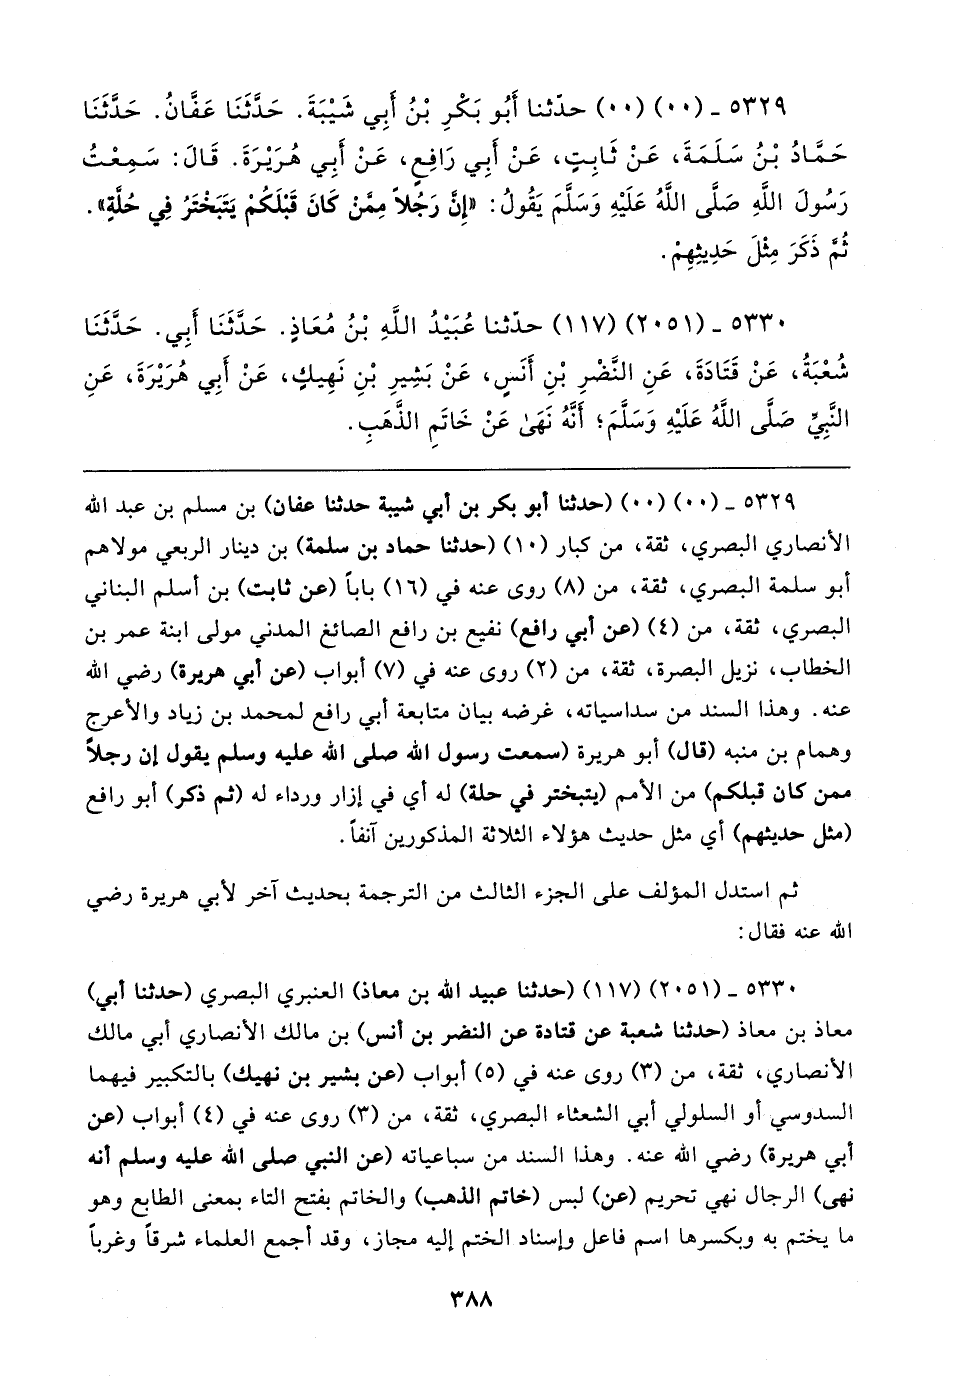 ٥٣٢٩ ـ (٠٠) (٠٠) حدّثنا أَبُو بَكْرِ بْنُ أَبِي شَيْبَةَ. حَدَّثَنَا عَفَّانُ. حَدَّثَنَا
حَمَّادُ بْنُ سَلَمَةَ، عَنْ ثَابِتٍ، عَنْ أَبِي رَافِعٍ، عَنْ أَبِي هُرَيْرَةَ. قَالَ: سَمِعْتُ
رَسُولَ اللَّهِ صَلَّى اللَّهُ عَلَيْهِ وَسَلَّمَ يَقُولُ: «إِنَّ رَجُلاً مِمَّنْ كَانَ قَبْلَكُمْ يَتَبَخْتَرُ فِي حُلَّةٍ».
ثُمَّ ذَكَرَ مِثْلَ حَدِيثِهِمْ.
٥٣٣٠ ـ (٢٠٥١) (١١٧) حدّثنا عُبَيْدُ اللَّهِ بْنُ مُعَاذٍ. حَدَّثَنَا أَبِي. حَدَّثَنَا
شُعْبَةُ، عَنْ قَتَادَةَ، عَنِ النَّضْرِ بْنِ أَنَسٍ، عَنْ بَشِيرِ بْنِ نَهِيكٍ، عَنْ أَبِي هُرَيْرَةَ، عَنِ
النَّبِيِّ صَلَّى اللَّهُ عَلَيْهِ وَسَلَّمَ؛ أَنَّهُ نَهَىٰ عَنْ خَاتَمِ الذَّهَبِ.
٥٣٢٩ ـ (٠٠) (٠٠) (حدثنا أبو بكر بن أبي شيبة حدثنا عفان) بن مسلم بن عبد الله
الأنصاري البصري، ثقة، من كبار (١٠) (حدثنا حماد بن سلمة) بن دينار الربعي مولاهم
أبو سلمة البصري، ثقة، من (٨) روى عنه في (١٦) باباً (عن ثابت) بن أسلم البناني
البصري، ثقة، من (٤) (عن أبي رافع) نفيع بن رافع الصائغ المدني مولى ابنة عمر بن
الخطاب، نزيل البصرة، ثقة، من (٢) روى عنه في (٧) أبواب (عن أبي هريرة) رضي الله
عنه. وهذا السند من سداسياته، غرضه بيان متابعة أبي رافع لمحمد بن زياد والأعرج
وهمام بن منبه (قال) أبو هريرة (سمعت رسول الله صلى الله عليه وسلم يقول إن رجلاً
ممن كان قبلكم) من الأمم (يتبختر في حلة) له أي في إزار ورداء له (ثم ذكر) أبو رافع
(مثل حديثهم) أي مثل حديث هؤلاء الثلاثة المذكورين آنفاً.
ثم استدل المؤلف على الجزء الثالث من الترجمة بحديث آخر لأبي هريرة رضي
الله عنه فقال:
٥٣٣٠ ـ (٢٠٥١) (١١٧) (حدثنا عبيد الله بن معاذ) العنبري البصري (حدثنا أبي)
معاذ بن معاذ (حدثنا شعبة عن قتادة عن النضر بن أنس) بن مالك الأنصاري أبي مالك
الأنصاري، ثقة، من (٣) روى عنه في (٥) أبواب (عن بشير بن نهيك) بالتكبير فيهما
السدوسي أو السلولي أبي الشعثاء البصري، ثقة، من (٣) روى عنه في (٤) أبواب (عن
أبي هريرة) رضي الله عنه. وهذا السند من سباعياته (عن النبي صلى الله عليه وسلم أنه
نهى) الرجال نهي تحريم (عن) لبس (خاتم الذهب) والخاتم بفتح التاء بمعنى الطابع وهو
ما يختم به وبكسرها اسم فاعل وإسناد الختم إليه مجاز، وقد أجمع العلماء شرقاً وغرباً
٣٨٨